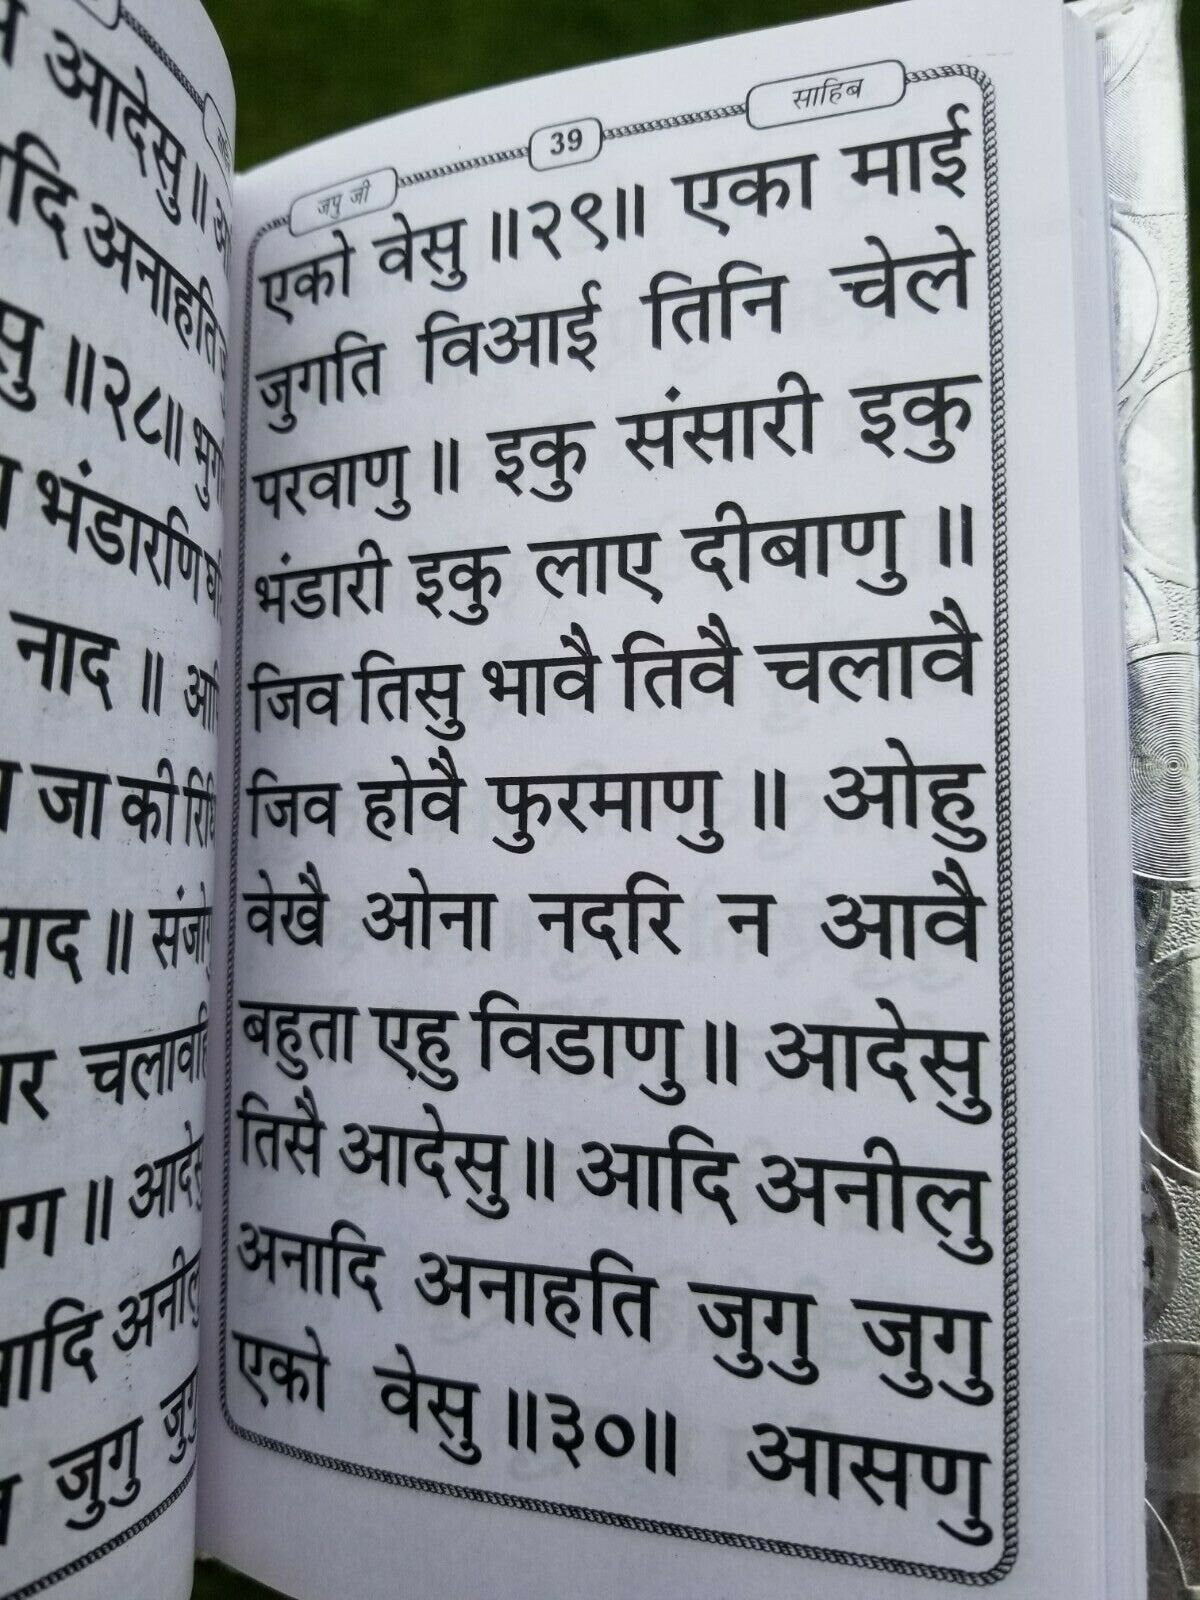 आदेसु ॥
अनाहति
॥२८॥
भंडारणि
नाद ॥
जा की
॥
चलावहि
॥ आदेसु
आदि अनीलु
जुगु जुगु
जपु जी 39 साहिब
एको वेसु ॥२९॥ एका माई
जुगति विआई तिनि चेले
परवाणु ॥ इकु संसारी इकु
भंडारी इकु लाए दीबाणु ॥
जिव तिसु भावै तिवै चलावै
जिव होवै फुरमाणु ॥ ओहु
वेखै ओना नदरि न आवै
बहुता एहु विडाणु ॥ आदेसु
तिसै आदेसु ॥ आदि अनीलु
अनादि अनाहति जुगु जुगु
एको वेसु ॥३०॥ आसणु